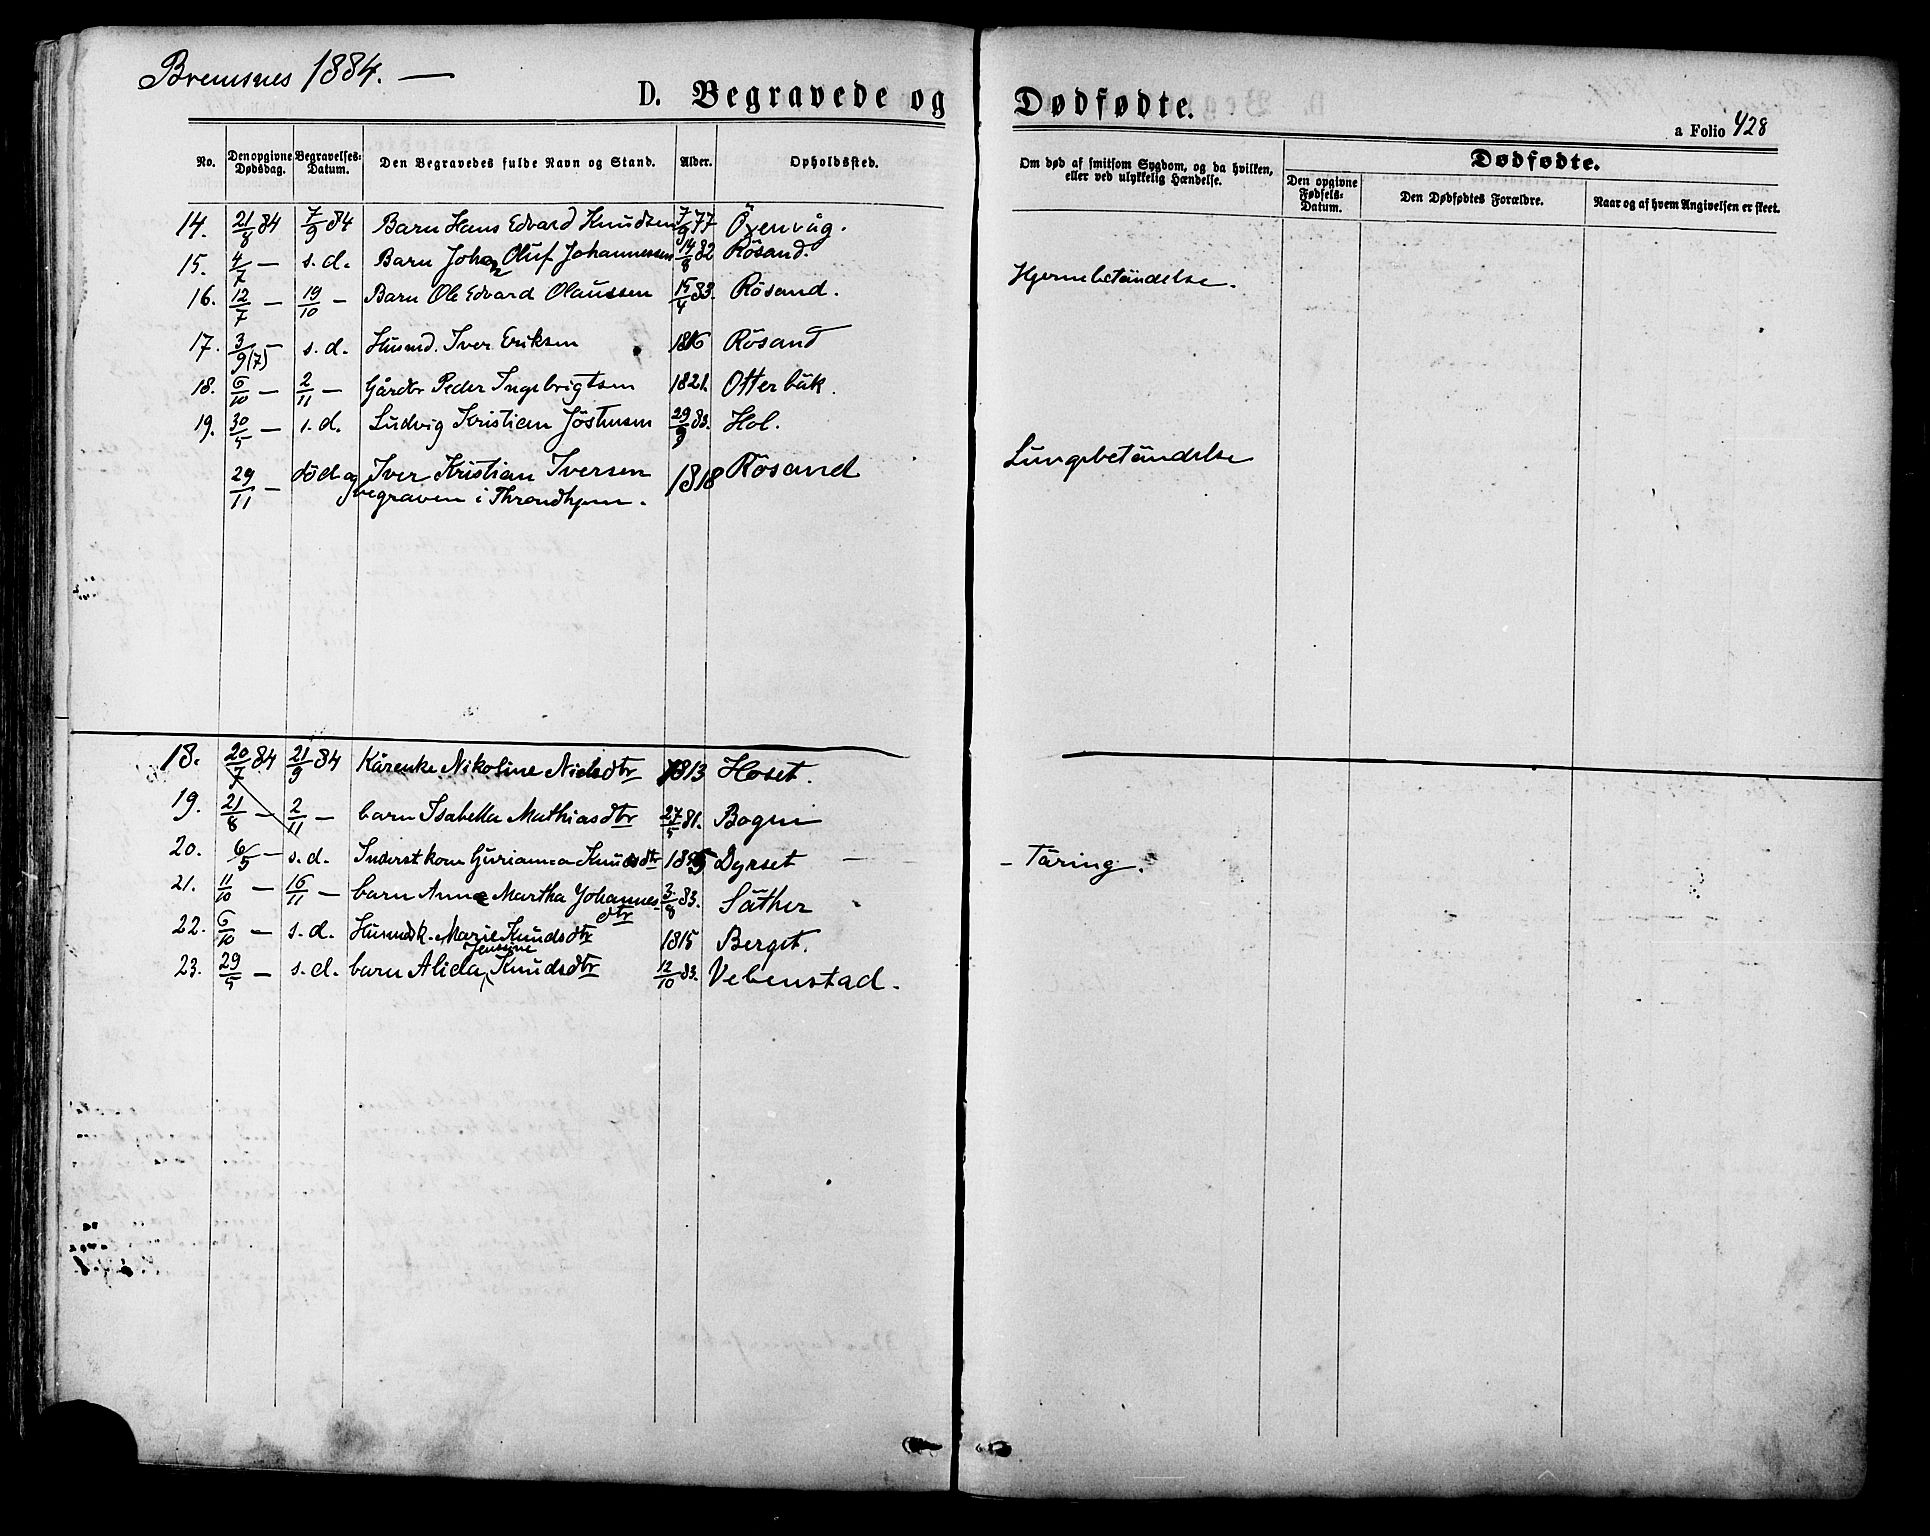 Bremsnes 1884. —
D. Begravede og Dødfødte.
a Folio 428
No. Den opgivne Dødsdag. Begravelses-Datum. Den Begravedes fulde Navn og Stand. Alder. Opholdssted.
Om død af smitsom Sygdom, og da hvilken, eller ved ulykkelig Hændelse.
Dødfødte.
Den opgivne Fødsels-Datum. Den Dødfødtes Forældre. Naar og af hvem Angivelsen er skeet.
14. 21/8 84 7/9 84 Barn Hans Edvard Knudsen 7/9 77 Övenvåg.
15. 4/7 — s. d. Barn Johan Oluf Johannessen 14/8 82 Rösand. Hjernebetändelse.
16. 12/7 — 19/10 — Barn Ole Edvard Olaussen 15/4 83. Rösand.
17. 3/9 (7) — s. d. Husmd. Iver Eriksen 1816 Rösand
18. 6/10 — 2/11 — Gårdbr Peder Ingebrigtsen 1821. Otterbäk.
19. 30/5 — s. d. Ludvig Kristian Jöstensen 29/9 83. Hol.
29/11 — död og Iver Kristian Iversen 1818 Rösand Lungebetändelse
begraven i Throndhjem.
18. 20/7 84 21/9 84 Kårenke Nikoline Nielsdtr 1813 Hoset.
19. 21/8 — 2/11 — barn Isabella Mathiasdtr 27/5 81. Bogen
20. 6/5 — s. d. Inderstkone Gurianna Knudsdtr 1855 Dyrset — - Täring.
21. 11/10 — 16/11 — barn Anne Martha Johannes- 3/8 83. Säther
dtr
22. 6/10 — s. d. Husmdsk. Marie Knudsdtr 1815 Berget.
Jensine
23. 29/5 — s. d. barn Alida Knudsdtr 12/10 83. Vebenstad.